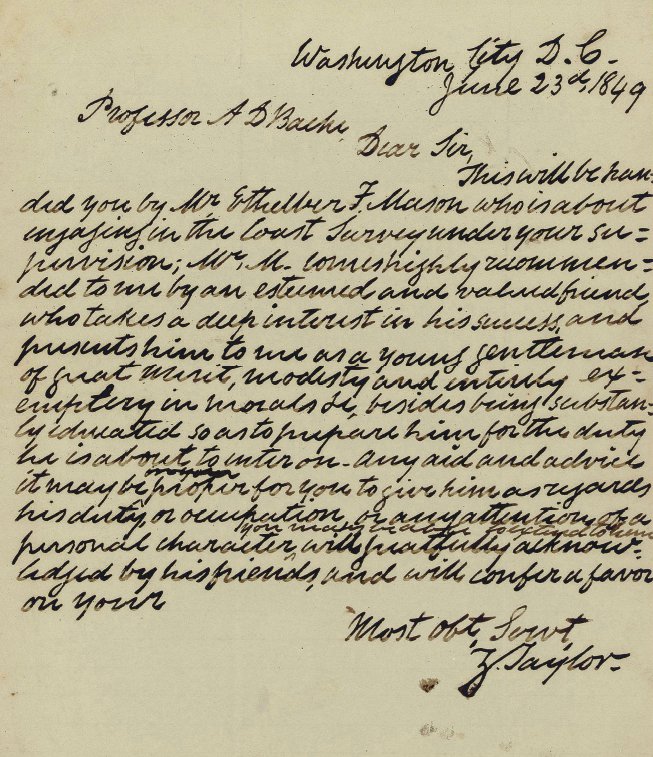 Washington City D. C.
June 23d, 1849
Professor A D Bache,
Dear Sir,
This will be han-
ded you by Mr Ethelber F. Mason who is about
engaging in the Coast Survey under your su=
pervision; Mr. M. comes highly recommen=
ded to me by an esteemed and valued friend,
who takes a deep interest in his success, and
presents him to me as a young gentleman
of great merit, modesty and entirely ex=
emplery in morals &c, besides being substan-
ly educated so as to prepare him for the duty
he is about to enter on - Any aid and advice
it may be proper for you to give him as regards
his duty, or occupation, or any attention of a
you may extend to him
personal character, will greatfully acknow-
ledged by his friends, and will confer a favor
on your
Most Obt, Servt
Z. Taylor-